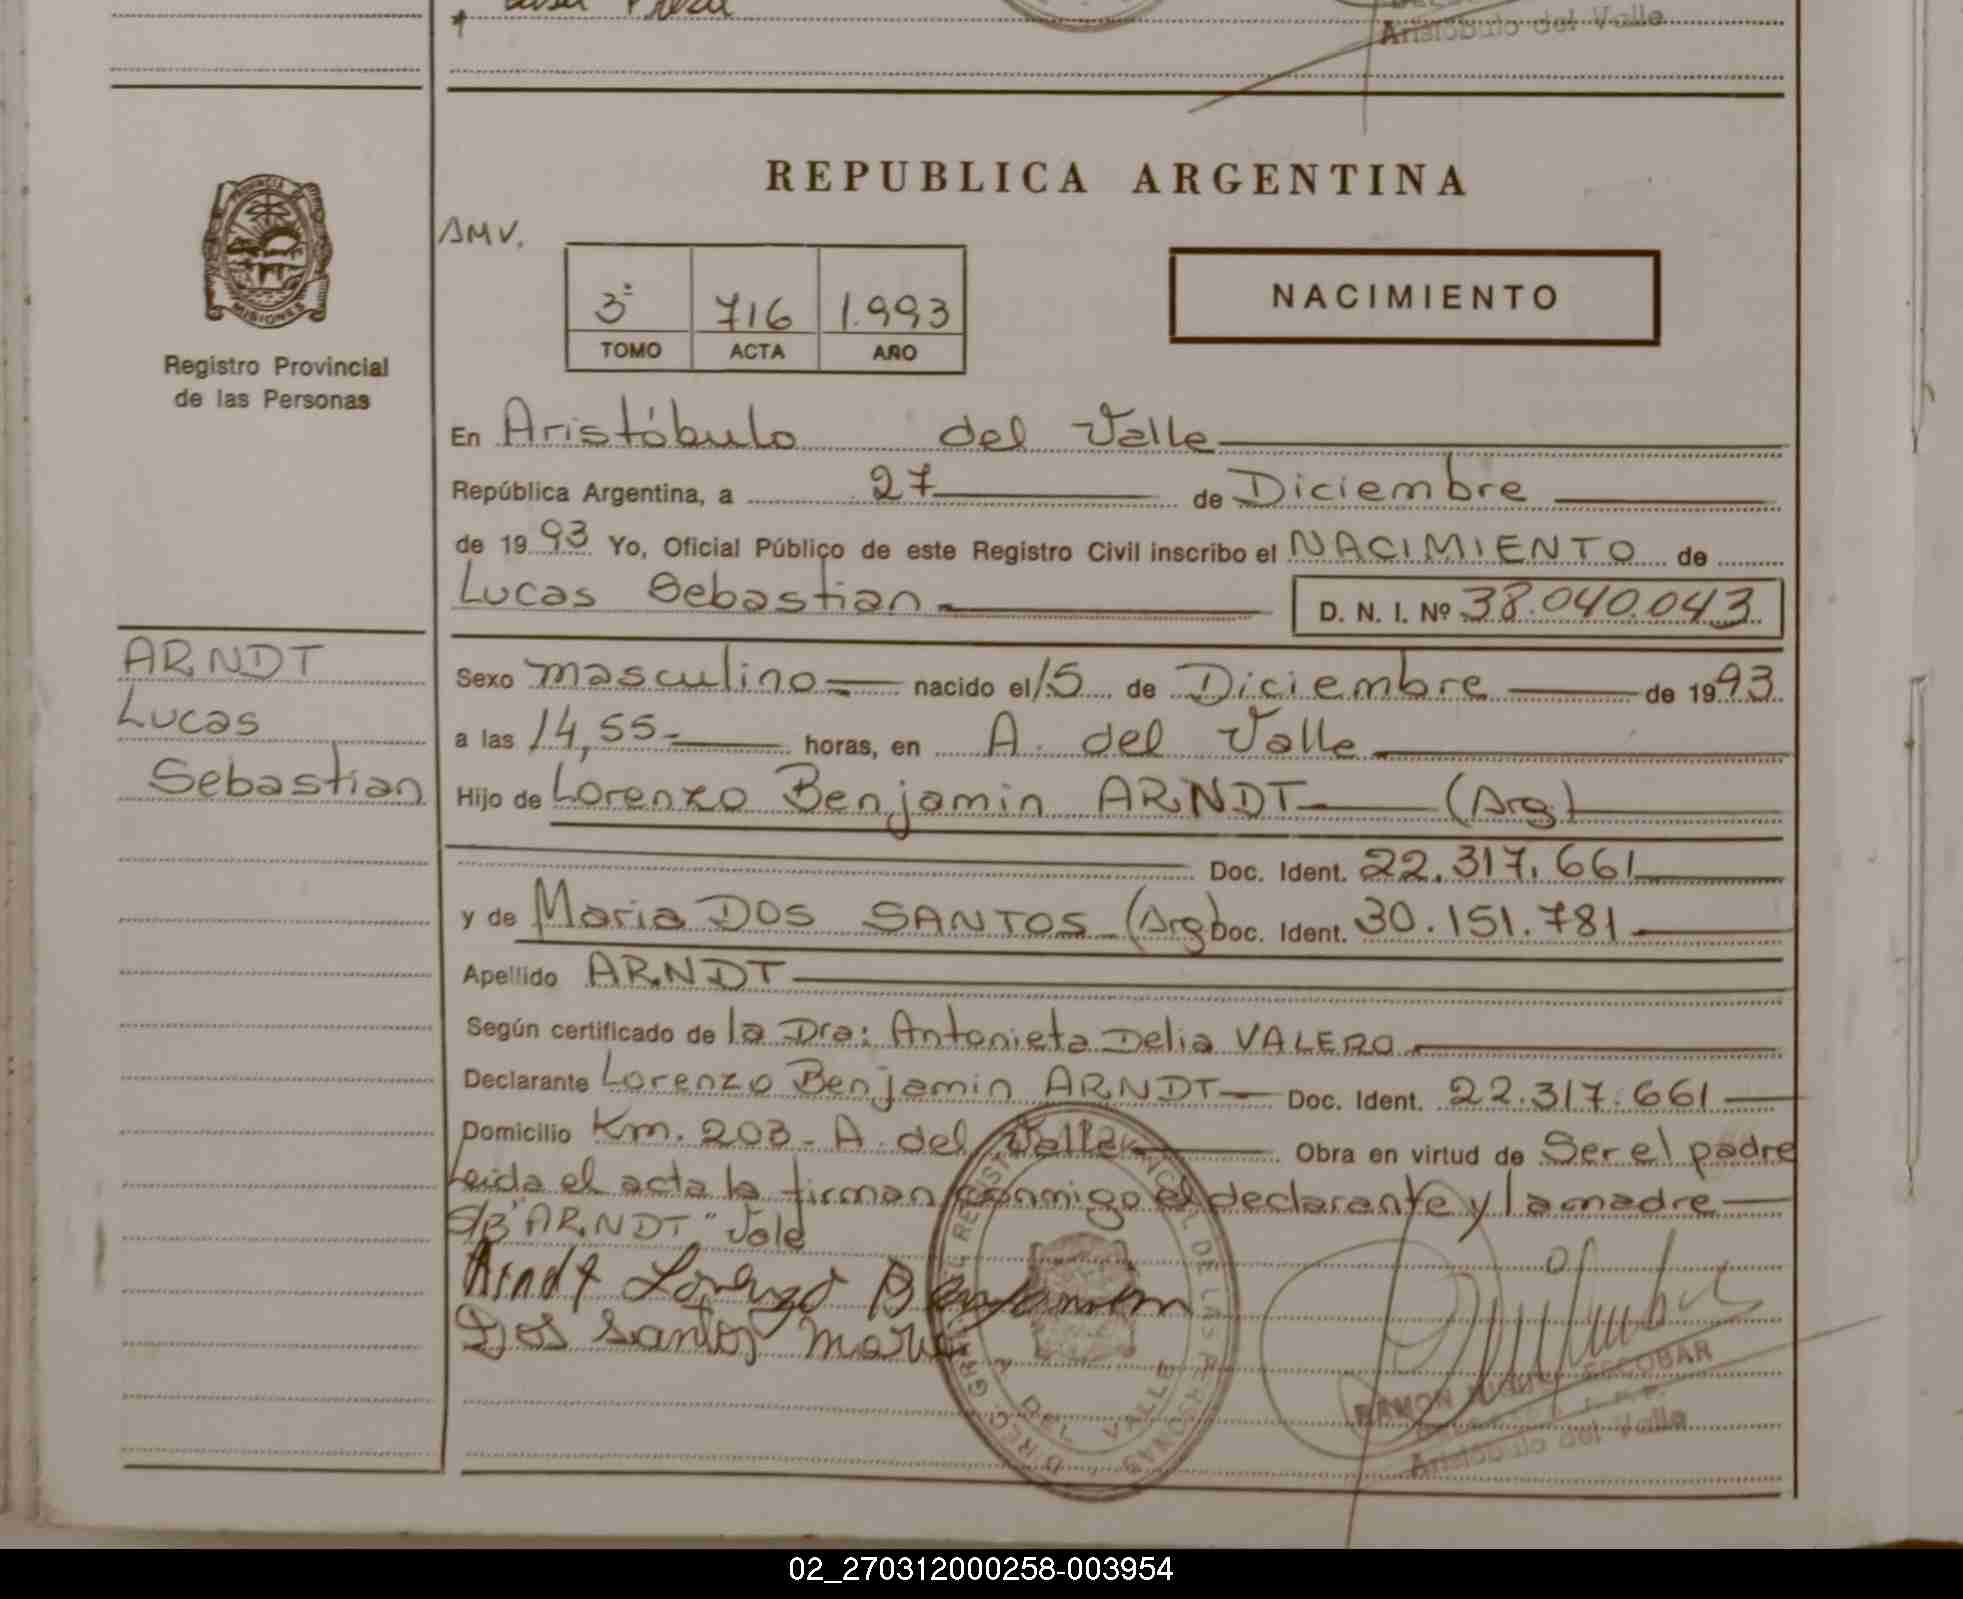 Aristóbulo del Valle
REPUBLICA ARGENTINA
PROVINCIA DE
MISIONES
Registro Provincial
de las Personas
AMV.
3º 716 1.993
TOMO ACTA AÑO
NACIMIENTO
En Aristóbulo del Valle
República Argentina, a 27 de Diciembre
de 1993 Yo, Oficial Público de este Registro Civil inscribo el NACIMIENTO de
Lucas Sebastian D. N. I. Nº 38.040.043
ARNDT
Lucas
Sebastian
Sexo masculino nacido el 15 de Diciembre de 1993
a las 14,55 horas, en A. del Valle
Hijo de Lorenzo Benjamin ARNDT (Arg)
Doc. Ident. 22.317.661
y de Maria DOS SANTOS (Arg) Doc. Ident. 30.151.781
Apellido ARNDT
Según certificado de la Dra: Antonieta Delia VALERO
Declarante Lorenzo Benjamin ARNDT Doc. Ident. 22.317.661
Domicilio Km. 203 - A. del Valle Obra en virtud de Ser el padre
Leida el acta la firman conmigo el declarante y la madre
S/B "ARNDT" Vale
Arndt Lorenzo Benjamin
Dos Santos Maria
A. DEL VALLE
RAMON MIGUEL ESCOBAR
Aristóbulo del Valle
02_270312000258-003954